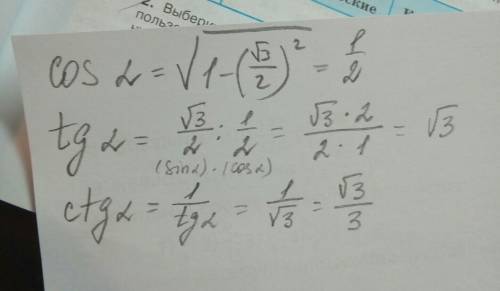 2. Выбери
пользо
cos α = √(1-(√3/2)²) = 1/2
tg α = √3/2 : 1/2 = √3·2/2·1 = √3
(sin α) · (cos α)
ctg α = 1/tg α = 1/√3 = √3/3